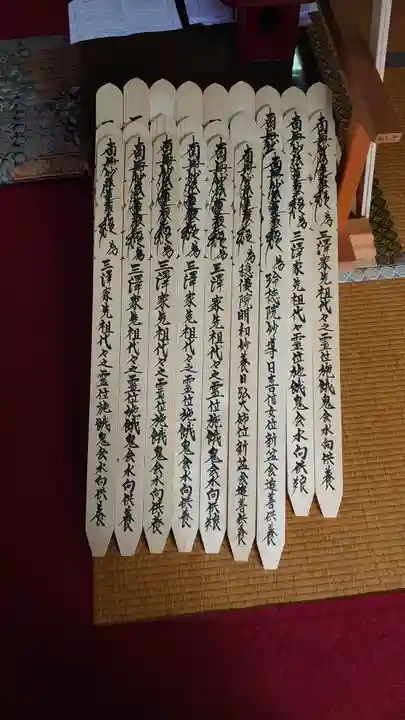 南無妙法蓮華経 為 三澤家先祖代々之霊位施餓鬼会水向供養
南無妙法蓮華経 為 三澤家先祖代々之霊位施餓鬼会水向供養
南無妙法蓮華経 為 院妙導日喜信女位新盆会追善供養
南無妙法蓮華経 為 院明初妙養日弘大姉位新盆会追善供養
南無妙法蓮華経 為 三澤家先祖代々之霊位施餓鬼会水向供養
南無妙法蓮華経 為 三澤家先祖代々之霊位施餓鬼会水向供養
南無妙法蓮華経 為 三澤家先祖代々之霊位施餓鬼会水向供養
南無妙法蓮華経 為 三澤家先祖代々之霊位施餓鬼会水向供養
南無妙法蓮華経 為 三澤家先祖代々之霊位施餓鬼会水向供養